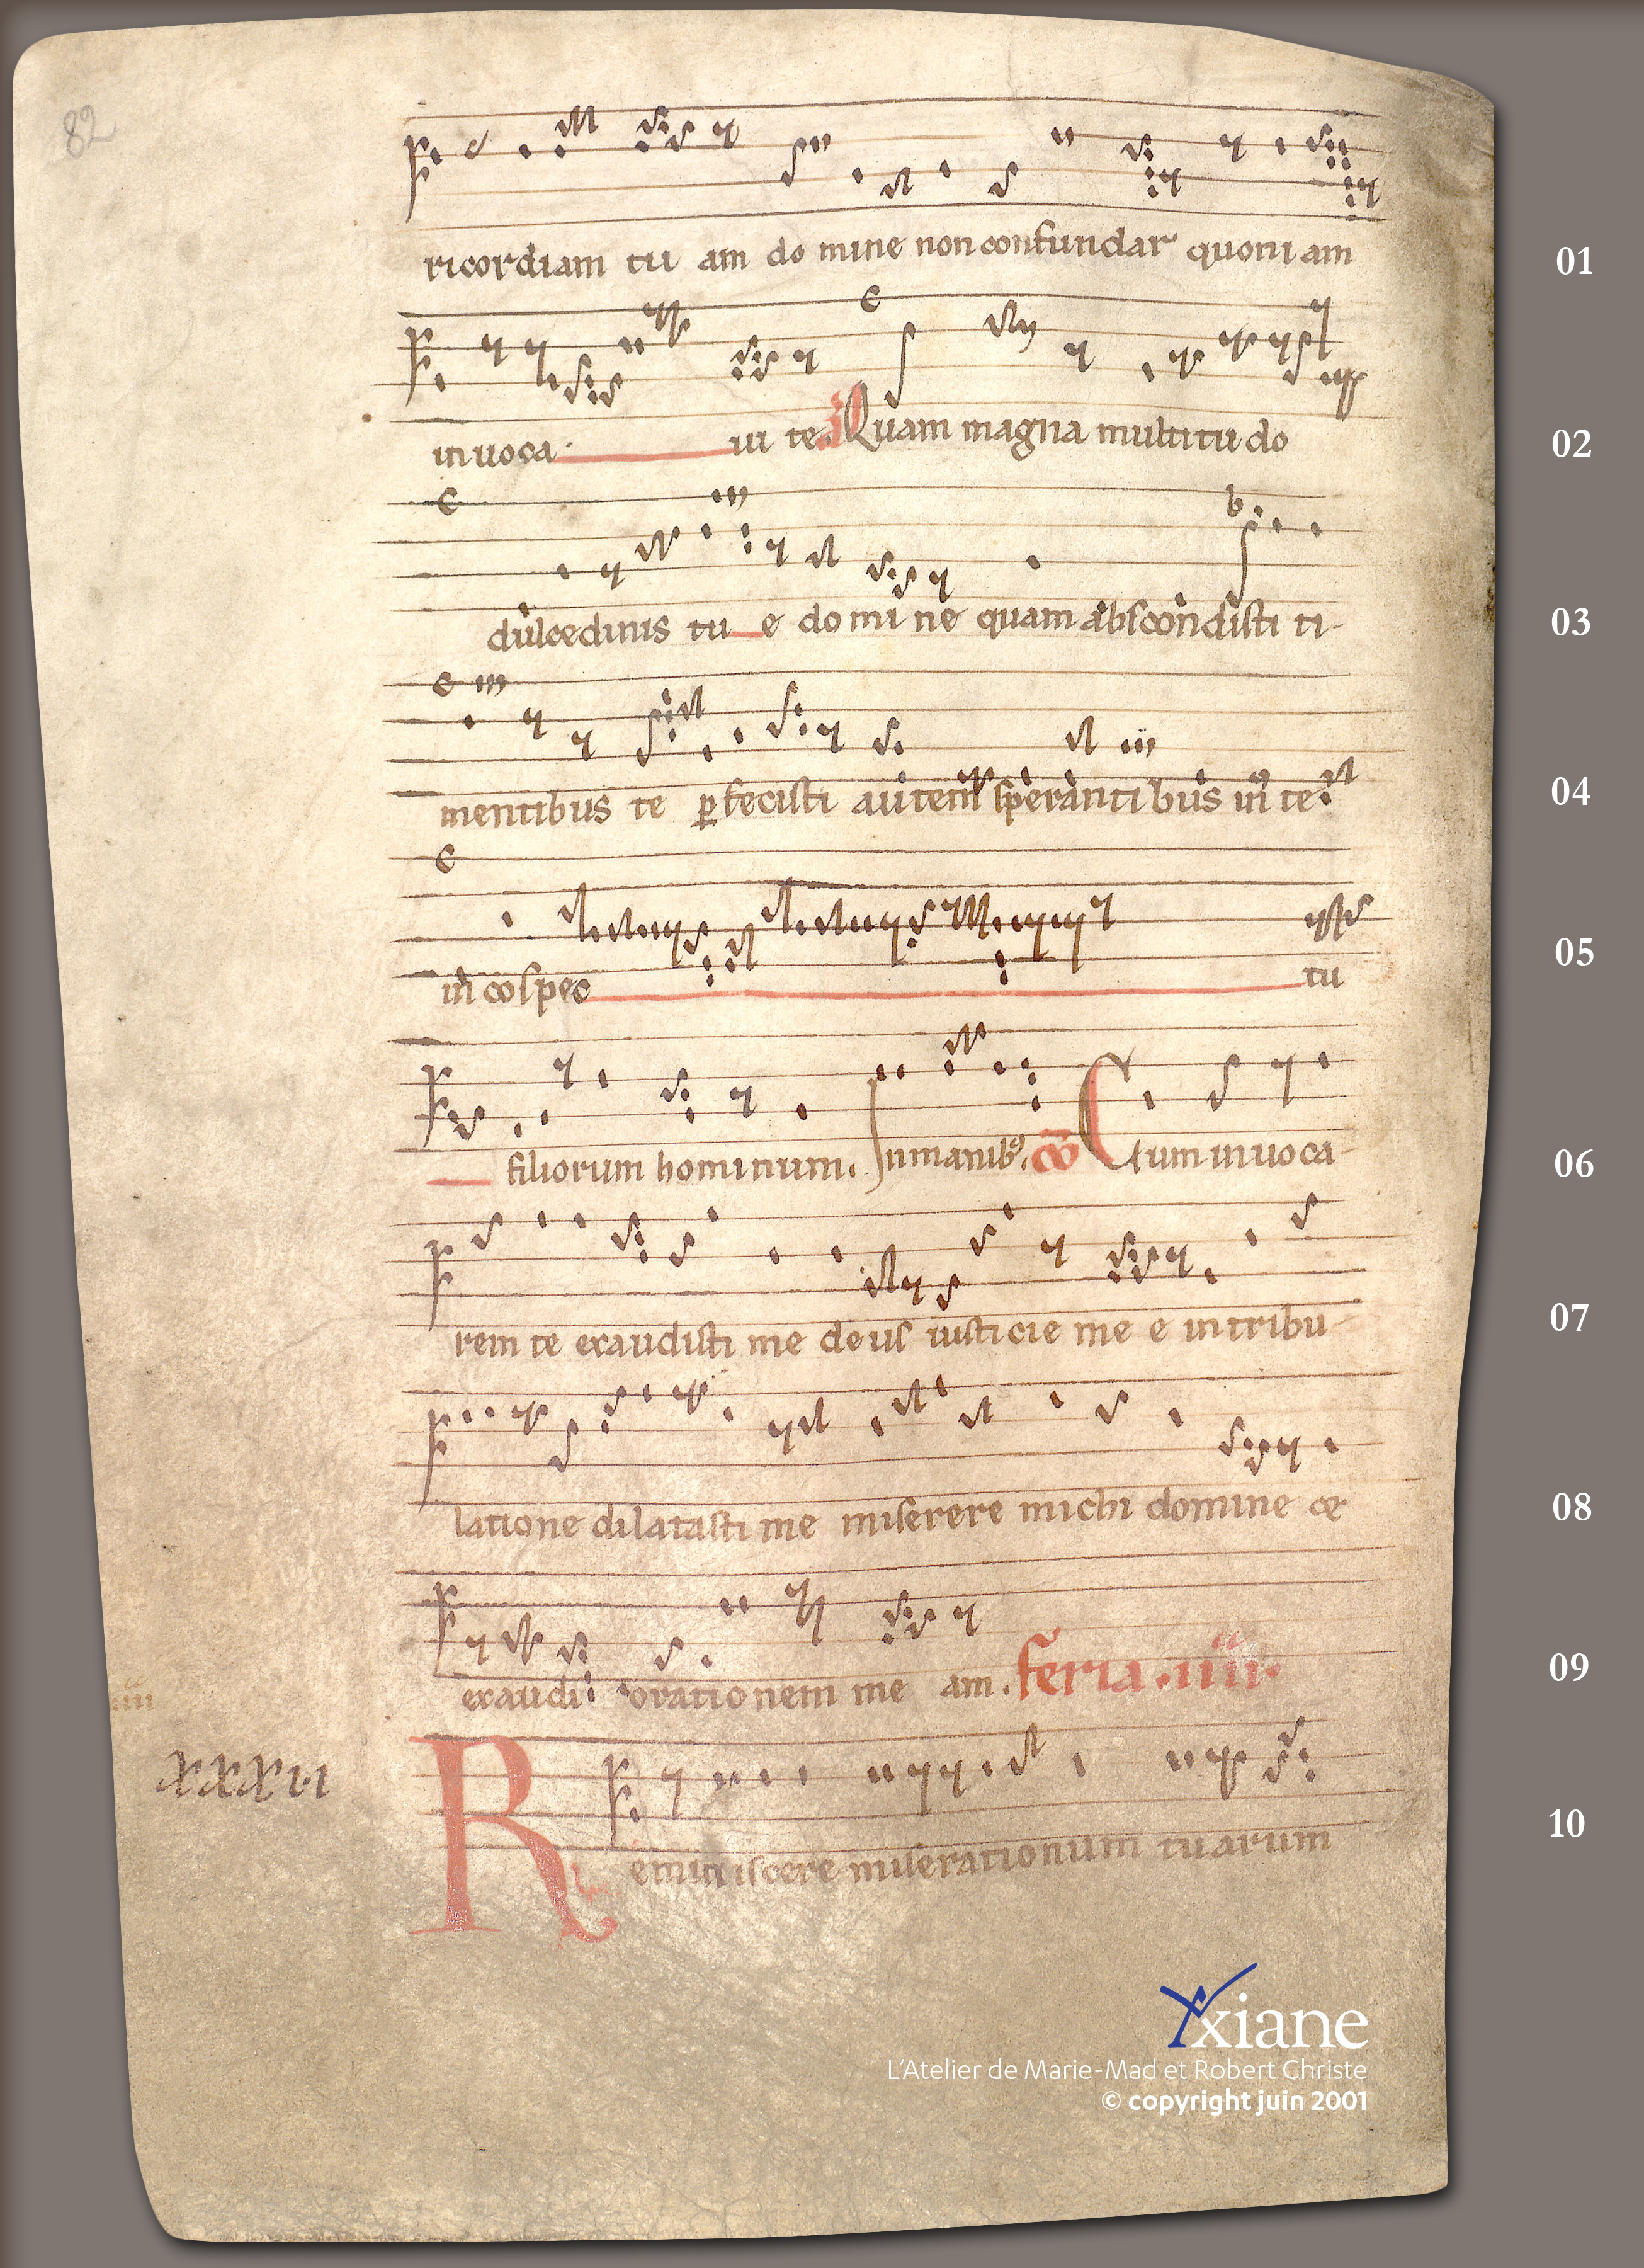 82
ricordiam tu am do mine non confundar quoni am 01
inuoca ui te. Quam magna multitudo 02
dulcedinis tu e domine quam abscondisti ti- 03
mentibus te ꝑfecisti autem sperantibus in te 04
in cospec tu 05
filiorum hominum. In manibꝰ. c̄o Cum inuoca- 06
rem te exaudisti me deus iusticie me e in tribu- 07
latione dilatasti me miserere michi domine et 08
exaudi orationem me am. feria .iiii. 09
iiii
xxxvi
Reminiscere miserationum tuarum 10
Yxiane
L'Atelier de Marie-Mad et Robert Christe
© copyright juin 2001